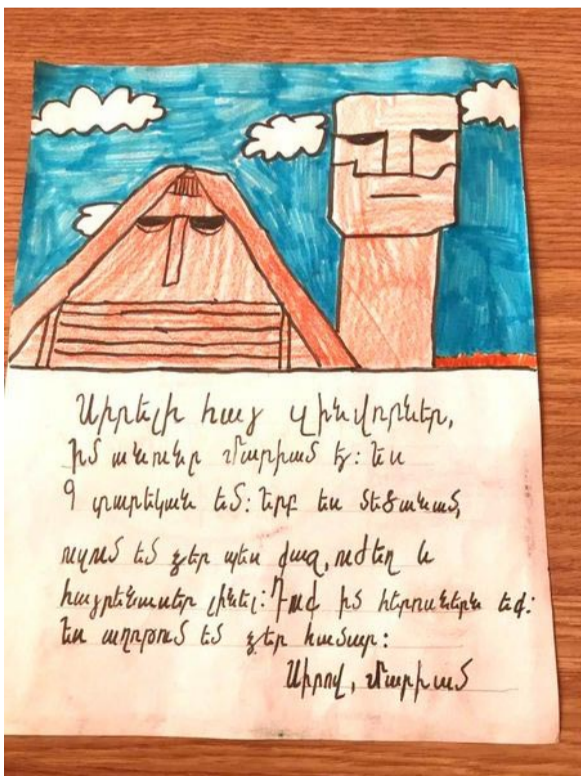 Սիրելի հայ զինվորներ,
Իմ անունը Մարիամ է: Ես
9 տարեկան եմ: Երբ ես մեծանամ,
ուզում եմ ձեր պես քաջ, ուժեղ և
հայրենասեր լինել: Դուք իմ հերոսներն եք:
Ես աղոթում եմ ձեր համար:
Սիրով, Մարիամ